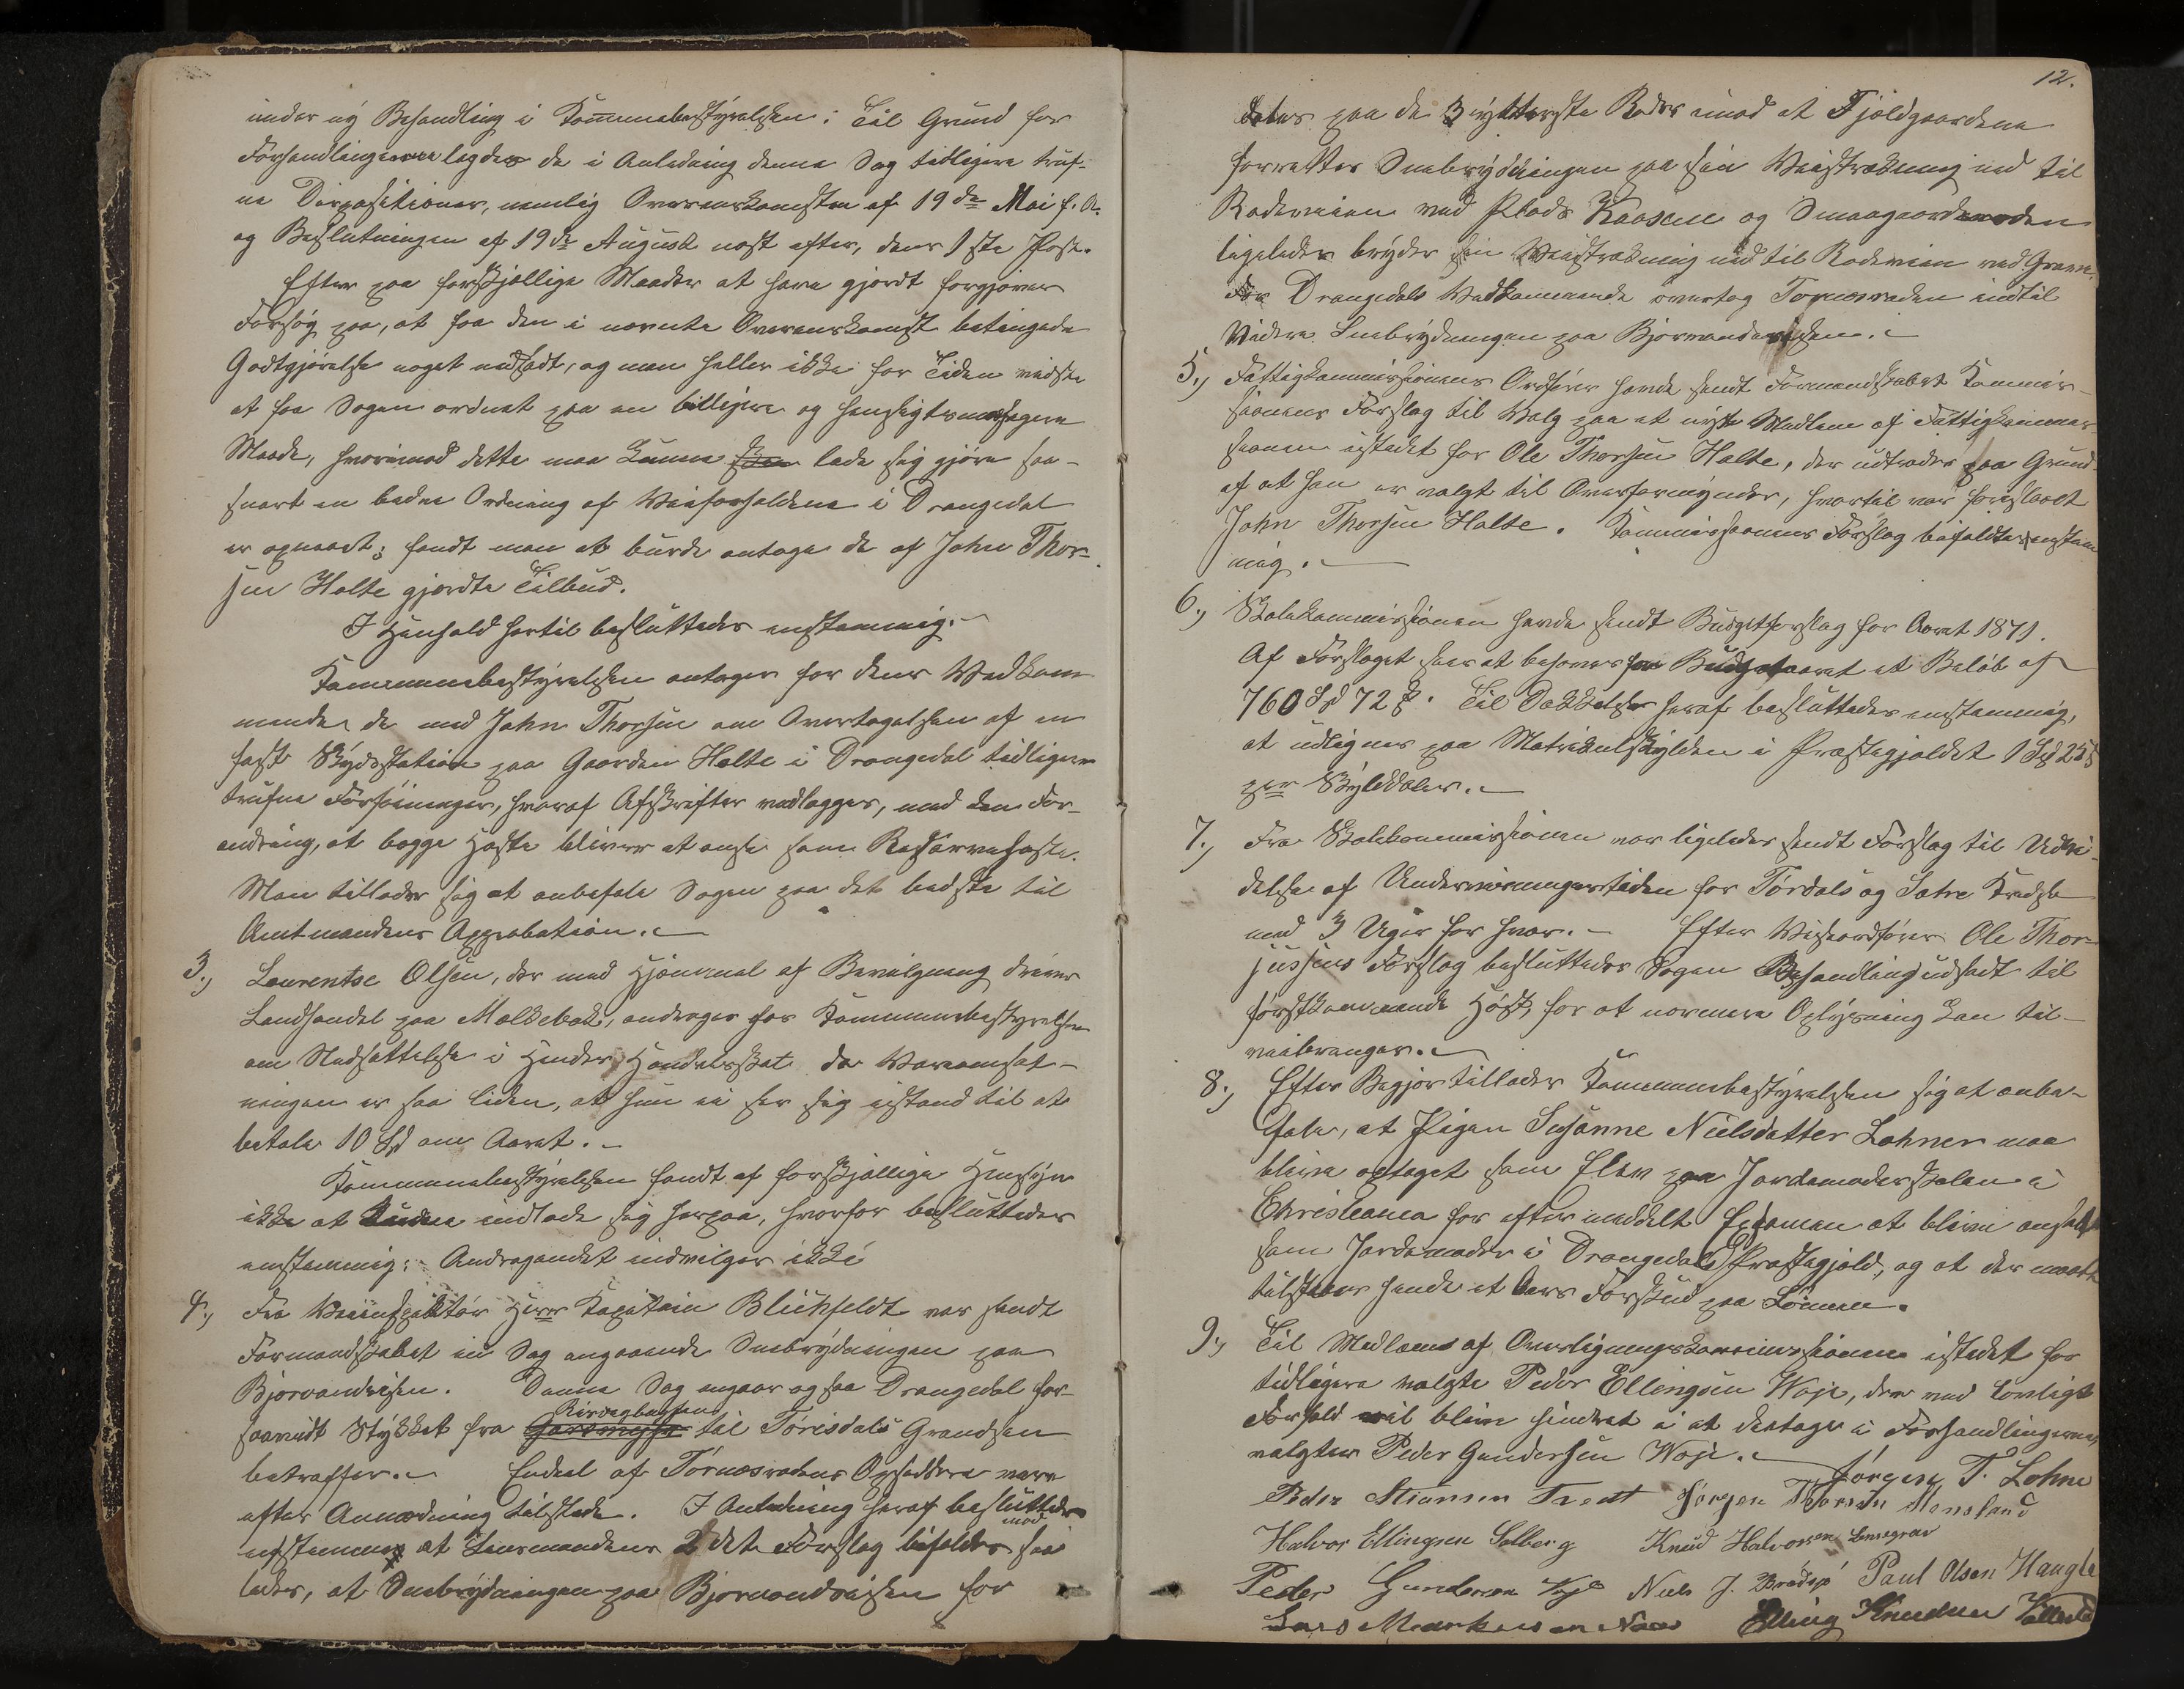 under ny Behandling i Kommunebestyrelsen. Til Grund for
Forhandlingerne lagdes de i Anledning denne Sag tidligere truf-
ne Dispositioner, nemlig Overenskomsten af 19de Mai f. A.
og Beslutningen af 19de August næst efter, dens 1ste Post.
Efter paa forskjellige Maader at have gjordt forgjæves
Forsøg paa, at faa den i nævnte Overenskomst betingede
Godtgjørelse noget nedsat, og man heller ikke for Tiden vidste
at faa Sagen ordnet paa en billigere og hensigtsmæssigere
Maade, hvorimod dette maa kunne lade sig gjøre saa-
snart en bedre Ordning af Veiforholdene i Drangedal
er opnaaet; fandt man at burde antage de af John Thor-
sen Holte gjordte Tilbud.
I Henhold hertil besluttedes enstemmig:
Kommunebestyrelsen antager for dens Vedkom-
mende de med John Thorsen om Overtagelsen af en
fast Skydsstation paa Gaarden Holte i Drangedal tidligere
trufne Forføininger, hvoraf Afskrifter vedlægges, med den For-
andring, at begge Heste bliver at anse som Reserveheste.
Man tillader sig at anbefale Sagen paa det bedste til
Amtmandens Approbation.
3.) Laurentse Olsen, der med Hjemmel af Bevilgning driver
Landhandel paa Molkebek, andrager for Kommunebestyrelsen
om Nedsættelse i Hendes Handelsskat da Vareomsæt-
ningen er saa liden, at hun ei ser sig istand til at
betale 10 Spd om Aaret.
Kommunebestyrelsen fandt af forskjellige Hensyn
ikke at kunne indlade sig herpaa, hvorfor besluttedes
enstemmig: Andragendet indvilges ikke
4.) Fra Veiinspektør Herr Kapitain Blichfeldt var sendt
Formandskabet en Sag angaaende Snebrydningen paa
Bjorvandveien. Denne Sag angaar ogsaa Drangedal for-
saavidt Stykket fra til Tørisdals Grændsen
betræffer. Endeel af Tørnesrodens Opsiddere vare
efter Anmodning tilstede. I Anledning heraf besluttedes
enstemmig at Lensmandens 2det Forslag bifaldes saa-
ledes, at Snebrydningen paa Bjorvandveien for
12.
deles paa de 3 ytterste Roder imod at Fjeldgaardene
forretter Snebrydningen paa sin Veistrækning ned til
Rodeveien ved Plads Kaasene og Smaagaardsroden
ligeledes bryder sin Veistrækning ned til Rodeveien ved
For Drangedals Vedkommende overtog Tørnesroden indtil
Videre Snebrydningen paa Bjorvandsveien.
5.) Fattigkommissionens Ordfører havde sendt Formandskabet Kommis-
sionens Forslag til Valg paa et nyt Medlem af Fattigkommis-
sionen istedet for Ole Thorsen Holte, der udtræder paa Grund
af at han er valgt til Overformynder, hvortil var foreslaaet
John Thorsen Holte. Kommissionens Forslag bifaldtes enstem-
mig.
6.) Skolekommissionen havde sendt Budgetforslag for Aaret 1871.
Af Forslaget sees at behøves for Budgetaaret et Beløb af
760 Spd 72 ß. Til Dækkelse heraf besluttedes enstemmig,
at udlignes paa Matrikulskylden i Præstegjeldet 1 Spd 25 ß
per Skylddaler.
7.) Fra Skolekommissionen var ligeledes sendt Forslag til Udvi-
delse af Undervisningstiden for Tørdals og Sætre Kredse
med 3 Uger for hver. Efter Viceordfører Ole Thor-
jussens Forslag besluttedes Sagens Behandling udsat til
førstkommende Høst, for at nærmere Oplysning kan til-
veiebringes.
8.) Efter Begjær tillader Kommunebestyrelsen sig at anbe-
fale, at Pigen Susanne Nielsdatter Lohner maa
blive optaget som Elev paa Jordemoderskolen i
Christiania for efter meddelt Examen at blive ansat
som Jordemoder i Drangedals Præstegjeld, og at der maatte
tilstaaes hende et Aars Forskud paa Lønnen.
9.) Til Medlem af Overligningskommissionen istedet for
tidligere valgte Peder Ellingsen Woje, der ved lovligt
Forfald vil blive hindret i at deltage i Forhandlingerne,
valgtes Peder Gundersen Woje.
Jørgen T. Lohne
Peder Stiansen Jørgen Thorsen
Halvor Ellingsen Solberg Knud Halvorsen
Peder Gundersen Voje Niels J. Paul Olsen Haugle
Lars Elling Knudsen